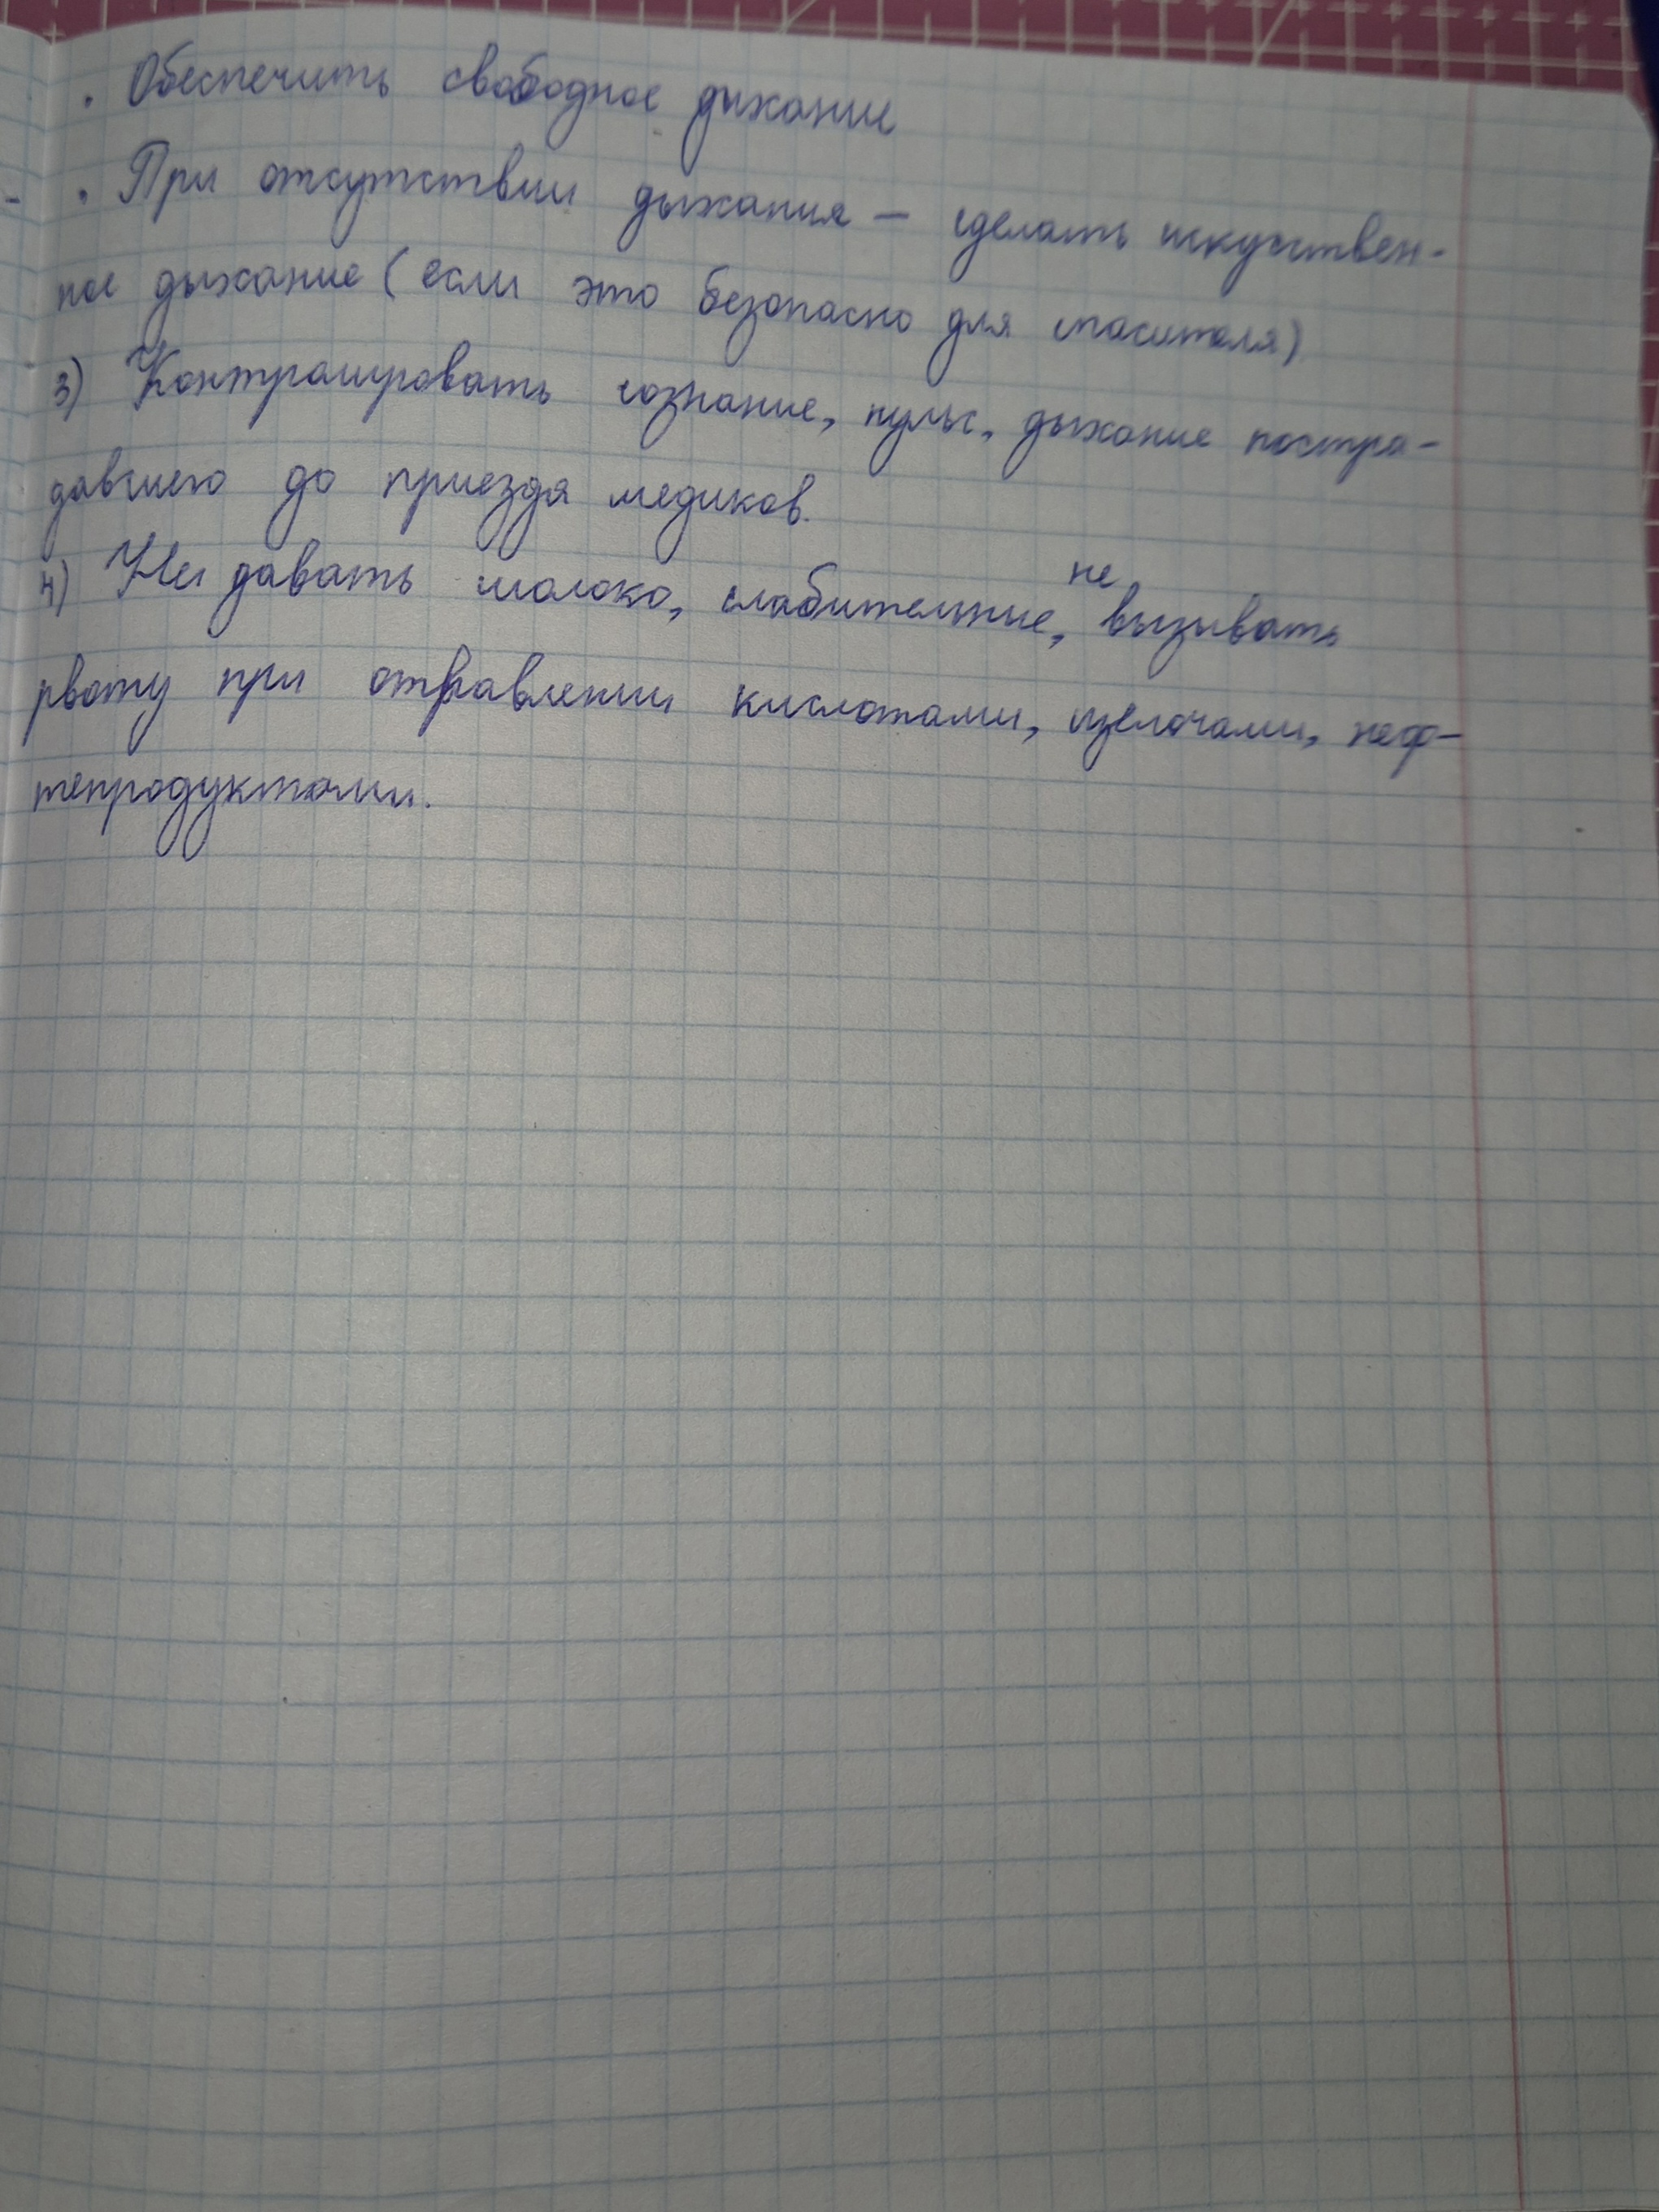 • Обеспечить свободное дыхание
• При отсутствии дыхания – сделать искуствен-
ное дыхание (если это безопасно для спасителя)
3) Контролировать сознание, пульс, дыхание постра-
давшего до приезда медиков.
4) Не давать молоко, слабительные, не вызывать
рвоту при отравлении кислотами, щелочами, неф-
тепродуктами.